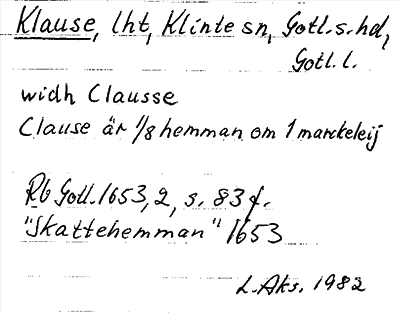 Klause, lht, Klinte sn, Gotl. s. hd,
Gotl. l.
widh Clausse
Clause är 1/8 hemman om 1 marckeleij
Rb Gotl. 1653, 2, s. 83 f.
"Skattehemman" 1653
L. Aks. 1982